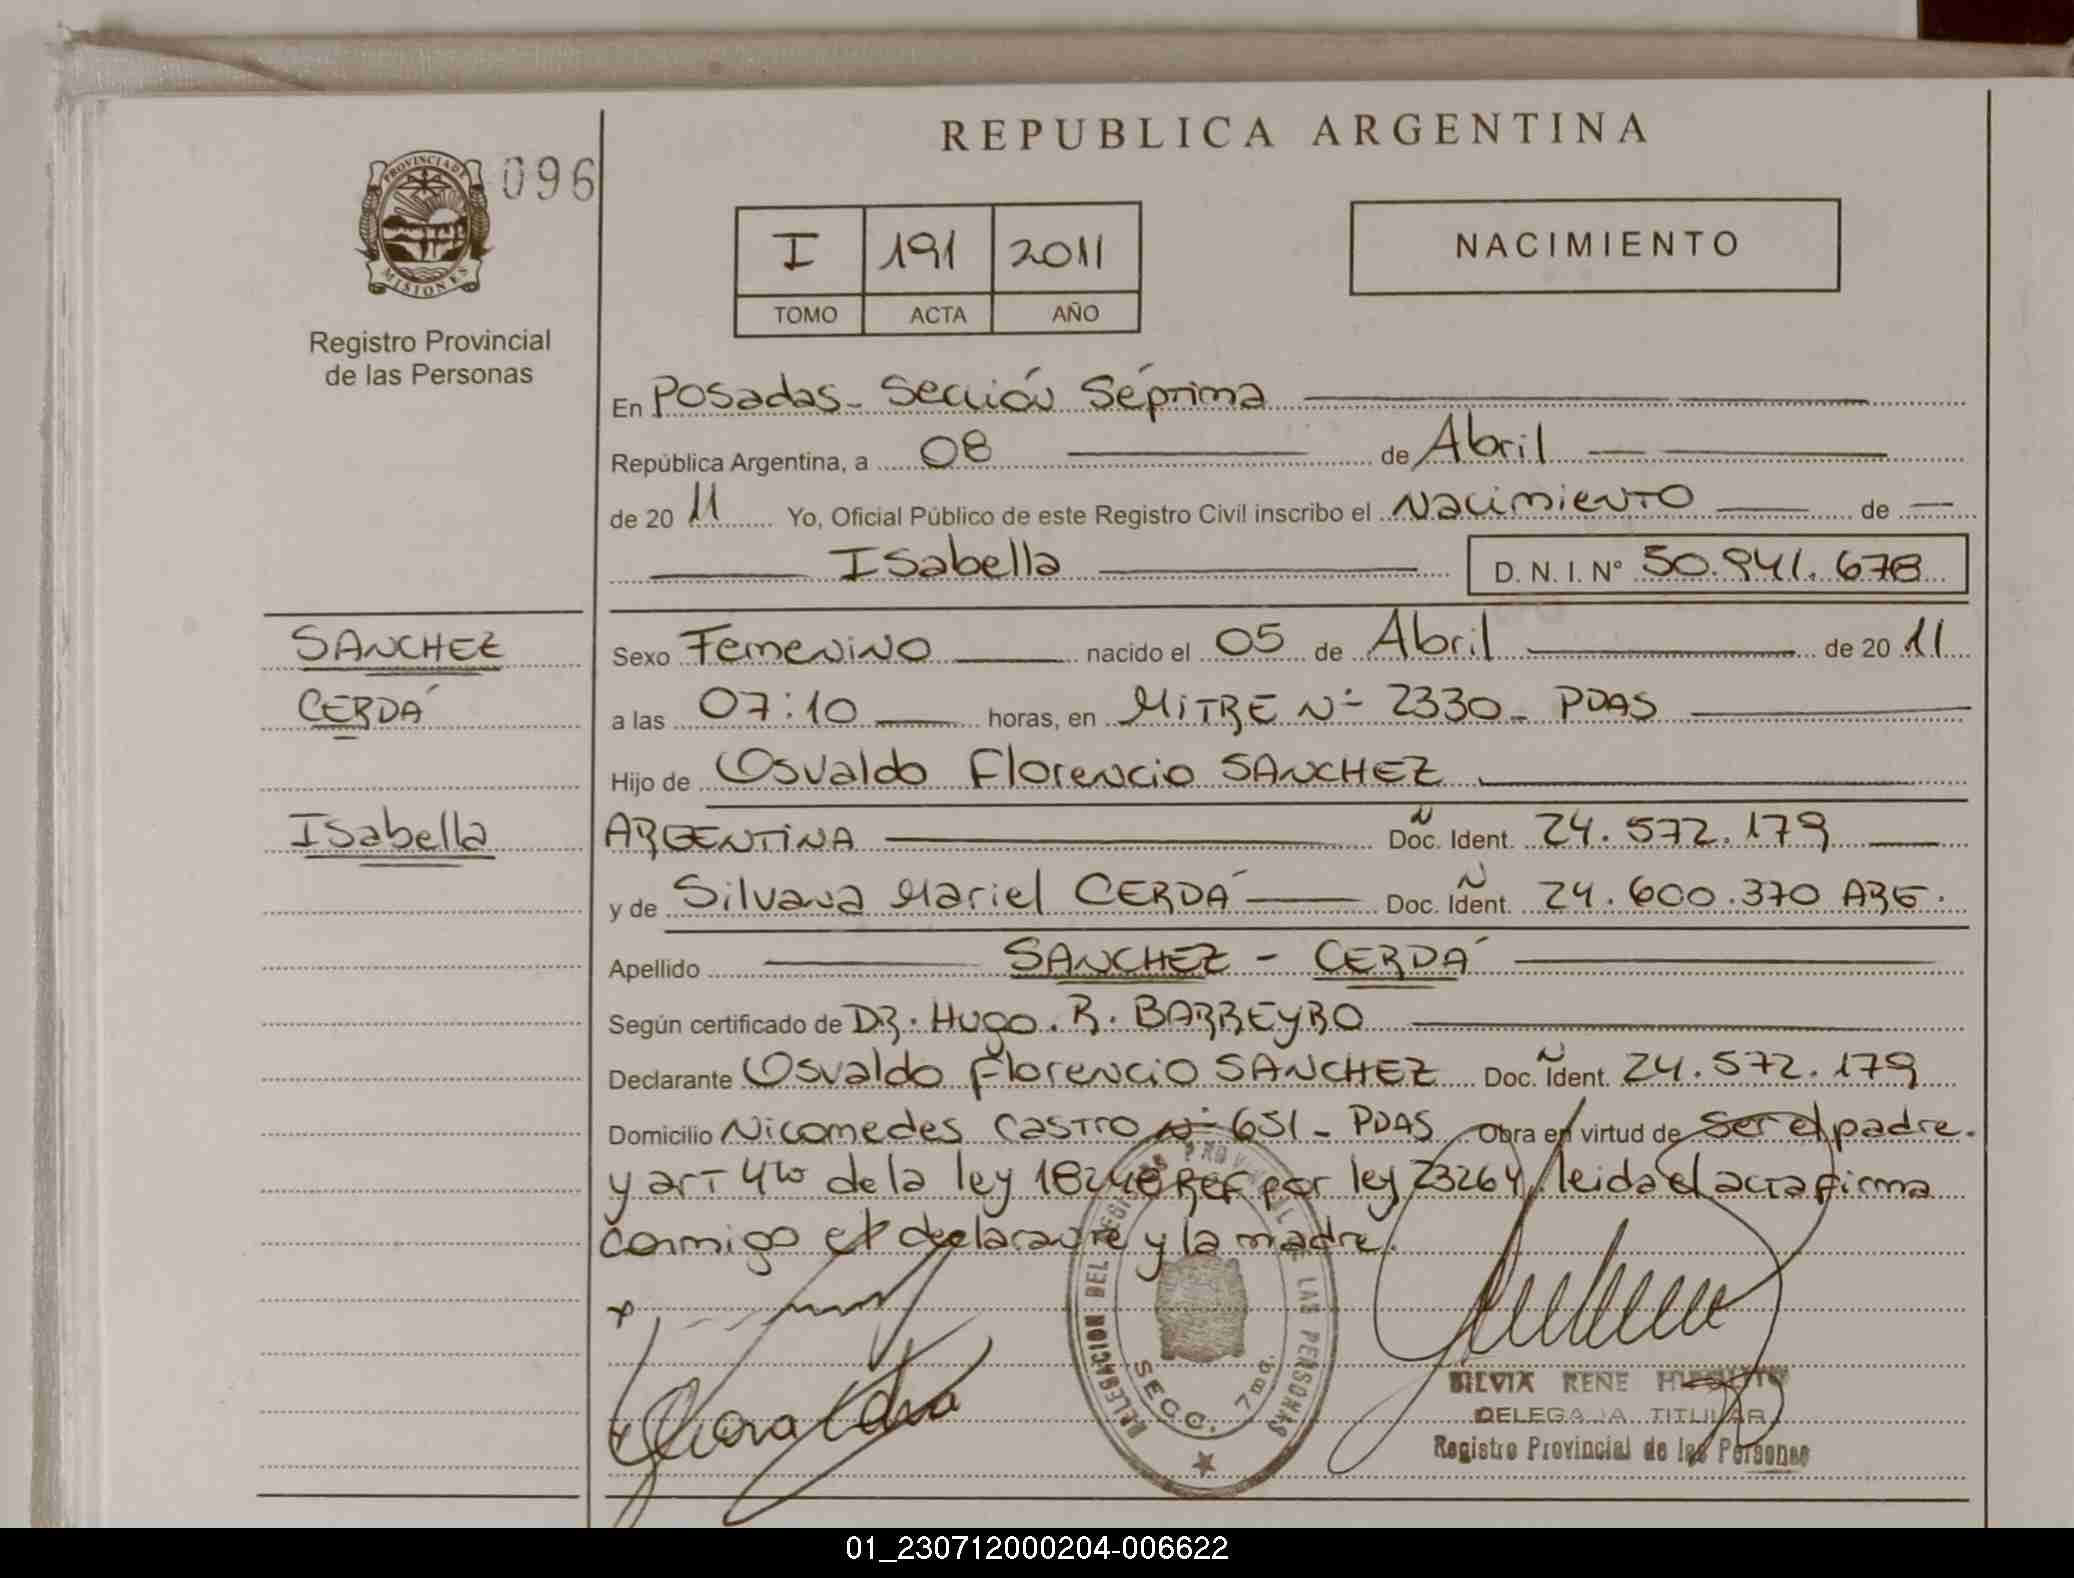 REPUBLICA ARGENTINA
PROVINCIA DE MISIONES
096
Registro Provincial
de las Personas
I 191 2011
TOMO ACTA AÑO
NACIMIENTO
En Posadas - Sección Séptima
República Argentina, a 08 de Abril
de 20 11 Yo, Oficial Público de este Registro Civil inscribo el Nacimiento de
Isabella D. N. I. N° 50.941.678
SANCHEZ
CERDÁ
Isabella
Sexo Femenino nacido el 05 de Abril de 20 11
a las 07:10 horas, en MITRE Nº 2330 - PDAS
Hijo de Osvaldo Florencio SANCHEZ
ARGENTINA Doc. Ident. N 24.572.179
y de Silvana Mariel CERDÁ Doc. Ident. N 24.600.370 ARG.
Apellido SANCHEZ - CERDÁ
Según certificado de DR. HUGO. R. BARREYRO
Declarante Osvaldo Florencio SANCHEZ Doc. Ident. N 24.572.179
Domicilio Nicomedes CASTRO Nº 651 - PDAS Obra en virtud de ser el padre.
y art 4to de la ley 18248 Ref por ley 23264, leida el acta firma
conmigo el declarante y la madre.
DELEGACION DEL REGISTRO PROVINCIAL DE LAS PERSONAS
SECC. 7ma.
SILVIA RENE
DELEGADA TITULAR
Registro Provincial de las Personas
01_230712000204-006622